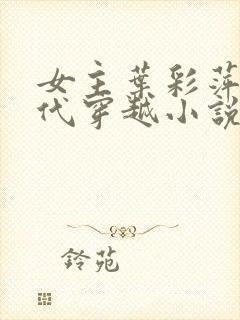 女主葉彩萍
代穿越小說
鈴苑